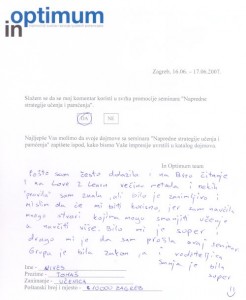 optimum
in
Zagreb, 16.06. – 17.06.2007.
Slažem se da se moj komentar koristi u svrhu promocije seminara "Napredne
strategije učenja i pamćenja".
DA
NE
Najljepše Vas molimo da svoje dojmove sa seminara "Napredne strategije učenja i
pamćenja" zapišete ispod, kako bismo Vaše impresije uvrstili u katalog dojmova.
In Optimum team
Pošto sam često dolazila na Brzo čitanje
i na Love 2 Learn većina metoda i nekih
su mi bila znane, ali bilo je zanimljivo i
mislim da će mi biti korisno, jer sam naučila
mnogo stvari kojima mogu smanjiti učenje
a naučiti više. Bilo mi je super i
drago mi je da sam prošla ovaj seminar
Grupa je bila zakon, a i voditeljica
Sanja je bila
super
Ime:
Prezime: TOMAŠ
Zanimanje: UČENICA
Poštanski broj i mjesto: 10000 ZAGREB